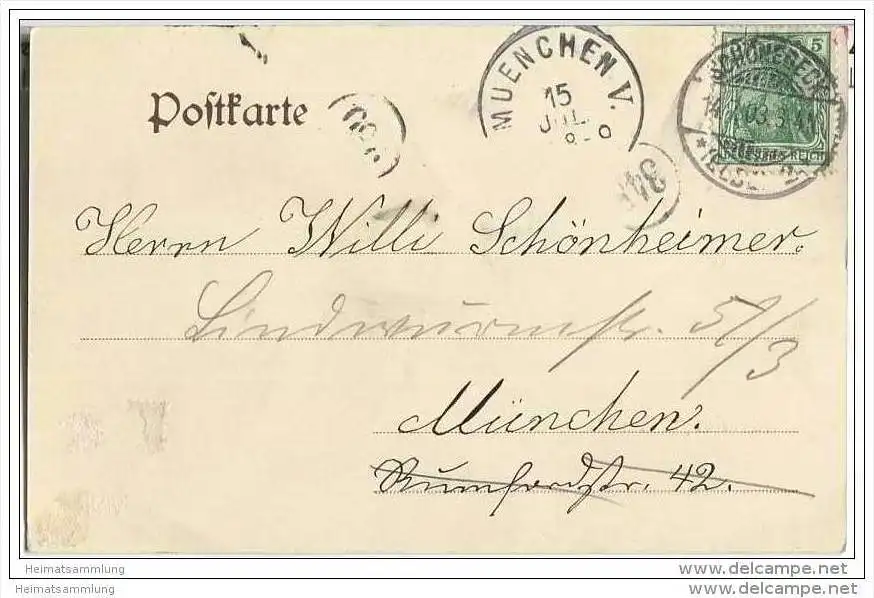 Postkarte
MUENCHEN V.
15
JUL.
8-9
5
SCHÖNEBECK
REICH
34
Herrn Willi Schönheimer.
Lindwurmstr. 51/3
München.
Rumfordstr. 42.
Heimatsammlung
Heimatsammlung
delcampe.net
delcampe.net